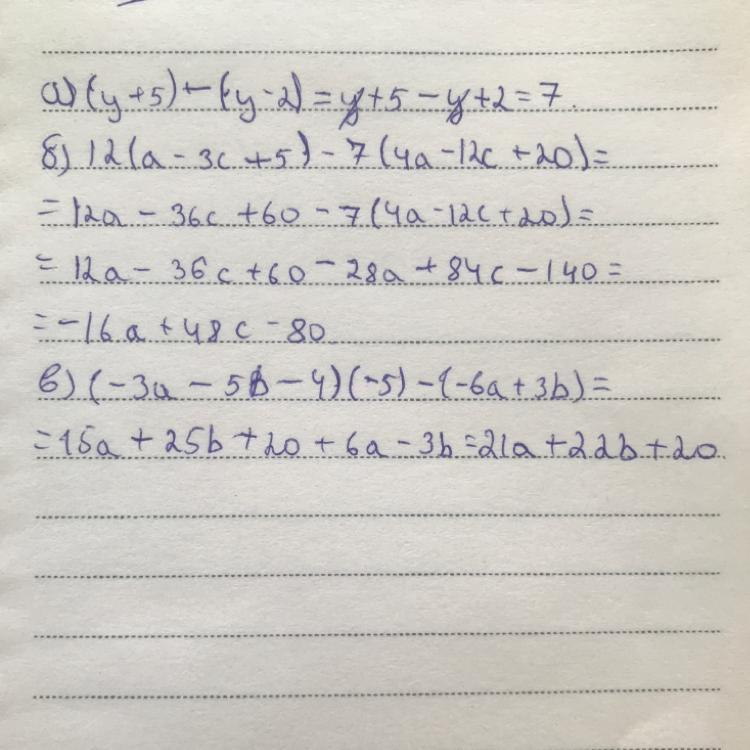 а) (y+5) - (y-2) = y+5 - y+2 = 7.
б) 12(a - 3c + 5) - 7(4a - 12c + 20) =
= 12a - 36c + 60 - 7(4a - 12c + 20) =
= 12a - 36c + 60 - 28a + 84c - 140 =
= -16a + 48c - 80
в) (-3a - 5b - 4)(-5) - (-6a + 3b) =
= 15a + 25b + 20 + 6a - 3b = 21a + 22b + 20.